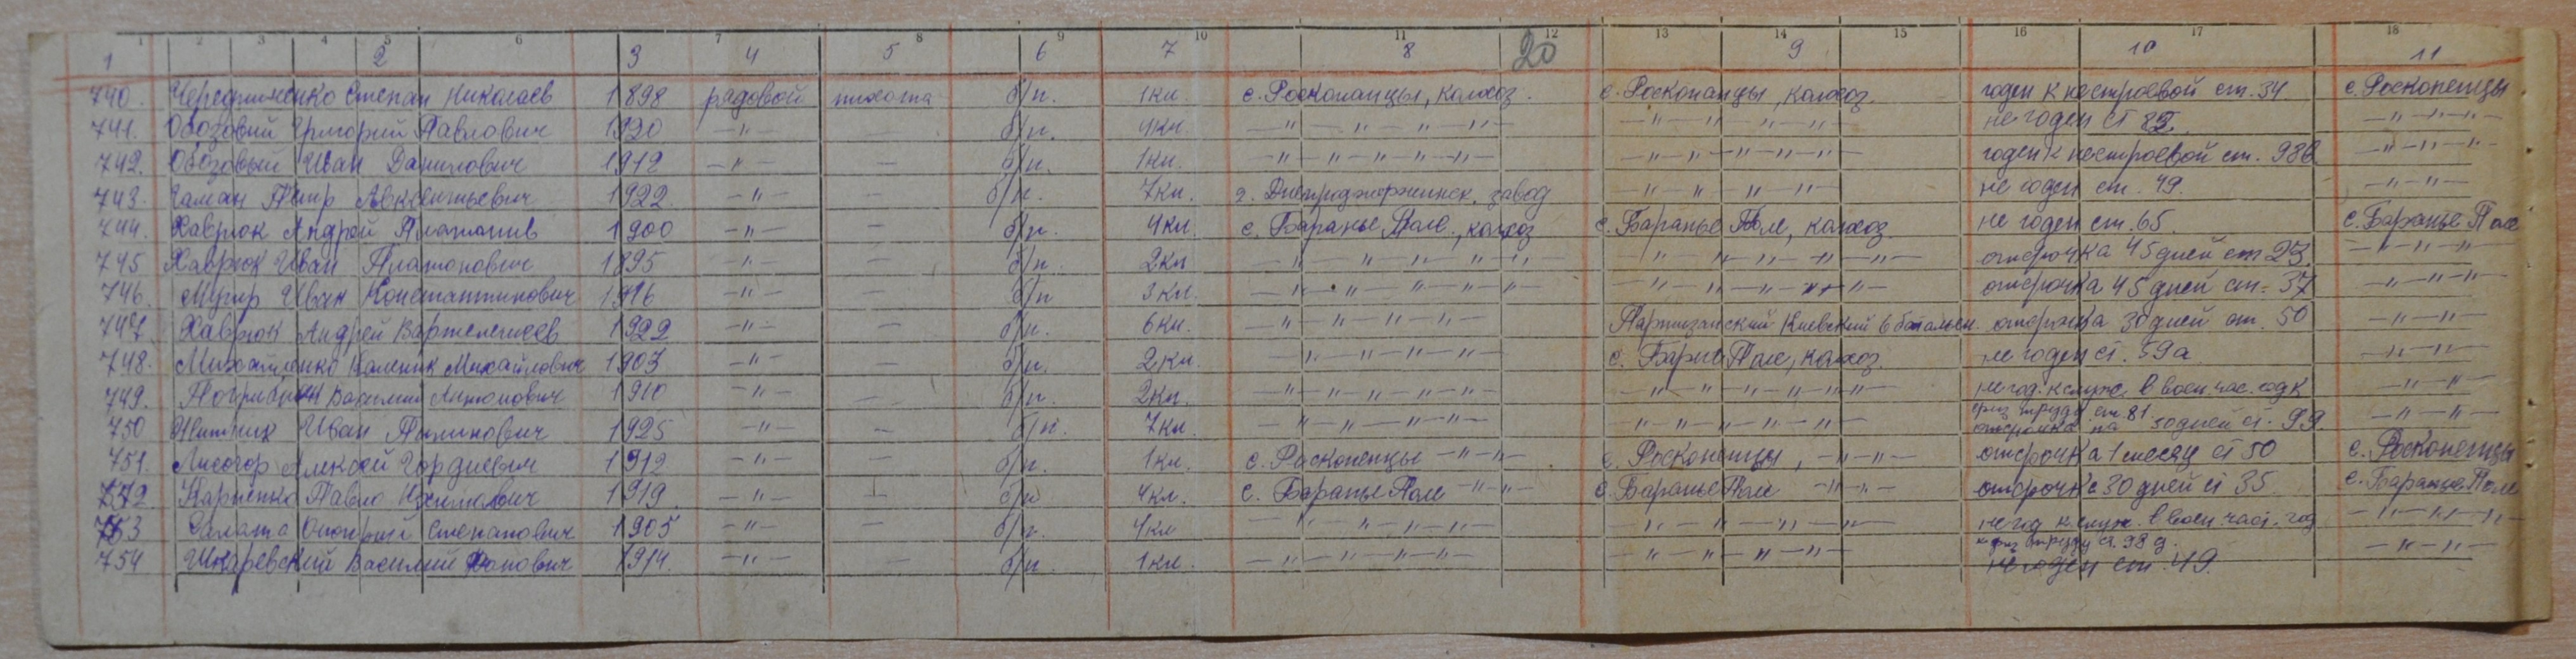 1 2 3 4 5 6 7 8 9 10 11 12 13 14 15 16 17 18
1 2 3 4 5 6 7 8 20 9 10 11
740. Чередниченко Степан Николаев 1898 рядовой пехота б/п. 1кл. с. Росконанцы, колхоз. с. Росконанцы, колхоз. годен к нестроевой ст. 34 с. Росконенцы
741. Обозовий Григорий Павлович 1920 -"- — б/п. 4кл. -"-"-"-"- -"-"-"-"- не годен ст 82. -"-"-"-
742. Обозовый Иван Данилович 1912 -"- — б/п. 1кл. -"-"-"-"-"- -"-"-"-"-"- годен к нестроевой ст. 98б -"-"-"-
743. Галган Петр Авксентьевич 1922 -"- — б/п. 7кл. г. Днепродзержинск, завод -"-"-"-"- не годен ст. 49. -"-"-
744. Хаврюк Андрей Платонив 1900 -"- — б/п. 4кл. с. Баранье Поле, колхоз с. Баранье Поле, колхоз. не годен ст. 65. с. Баранье Поле
745. Хаврюк Иван Платонович 1895 -"- — б/п. 2кл -"-"-"-"-"- -"-"-"-"-"- отсрочка 45 дней ст 23. -"-"-"-
746. Мугир Иван Константинович 1916 -"- — б/п 3кл. -"-"-"-"-"- -"-"-"-"-"- отсрочка 45 дней ст. 37 -"-"-"-
747. Хаврюк Андрей 1922 -"- — б/п. 6кл. -"-"-"-"- Партизанский Киевский 6 батальон. отсрочка 30 дней ст. 50 -"-"-
748. Михайленко Каленик Михайлович 1903 -"- — б/п. 2кл. -"-"-"-"- с. Баранье Поле, колхоз. не годен ст. 59а -"-"-
749. Василий Антонович 1910 -"- — б/п. 2кл. -"-"-"-"- -"-"-"-"-"- не год. к служ. в воен час. год к -"-"-
физ труду ст. 81.
750 Иван 1925 -"- — б/п. 7кл. -"-"-"-"- -"-"-"-"- отсрочка на 30 дней ст. 99. -"-"-
751. Лисогор Алексей Гордиевич 1912 -"- — б/п. 1кл. с. Росконенцы -"-"- с. Росконенцы, -"-"- отсрочка 1 месяц ст 50 с. Росконенцы
752 Карпенко Павло 1919 -"- — б/п 4кл. с. Баранье Поле -"-"- с. Баранье Поле -"-"- отсрочка 30 дней ст 35. с. Баранье Поле
753 Салата Оноприй Степанович 1905 -"- — б/п. 4кл -"-"-"-"- -"-"-"-"- не год к служ. в воен част. год -"-"-"-
к физ труду ст. 98 д.
754 Шкаревский Василий 1914. -"- — б/п. 1кл. -"-"-"-"- -"-"-"-"- не годен ст. 49. -"-"-